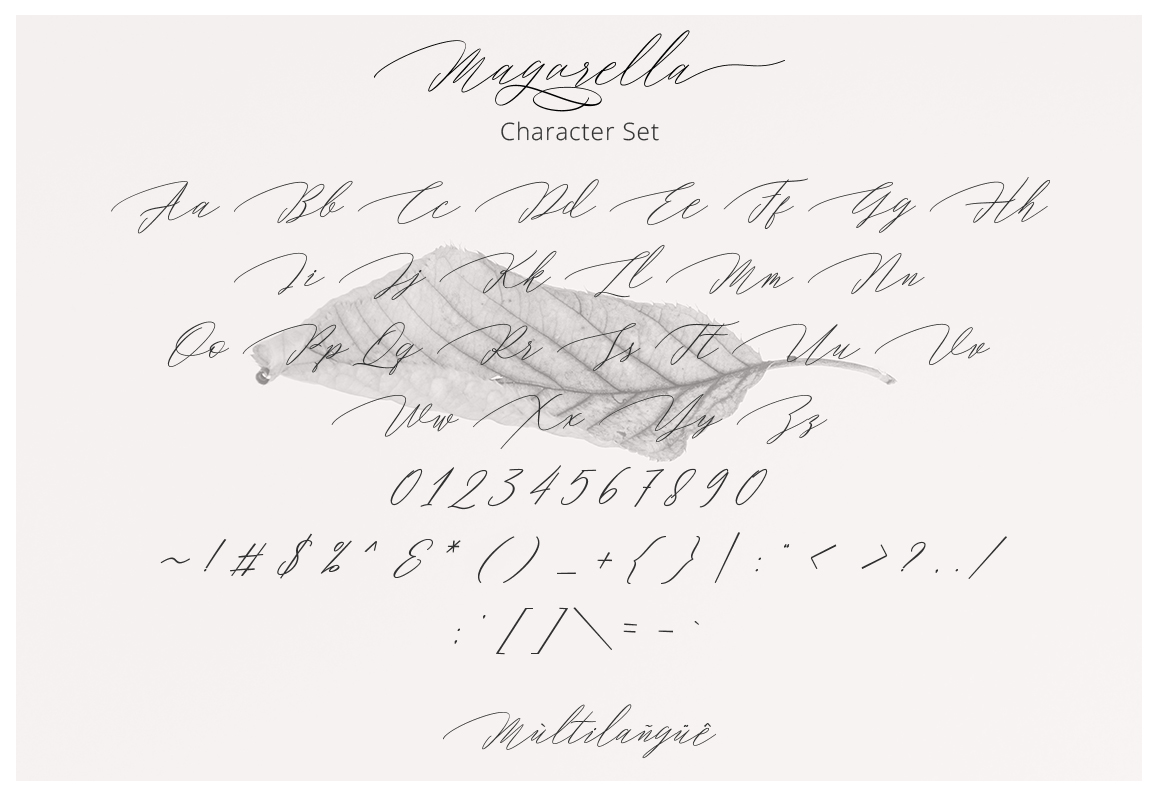 Magarella
Character Set
Aa Bb Cc Dd Ee Ff Gg Hh
Ii Jj Kk Ll Mm Nn
Oo Pp Qq Rr Ss Tt Uu Vv
Ww Xx Yy Zz
0 1 2 3 4 5 6 7 8 9 0
~ ! # $ % ^ & * ( ) _ + { } | : " < > ? . . /
; ' [ ] \ = - `
Mùltilañgüê